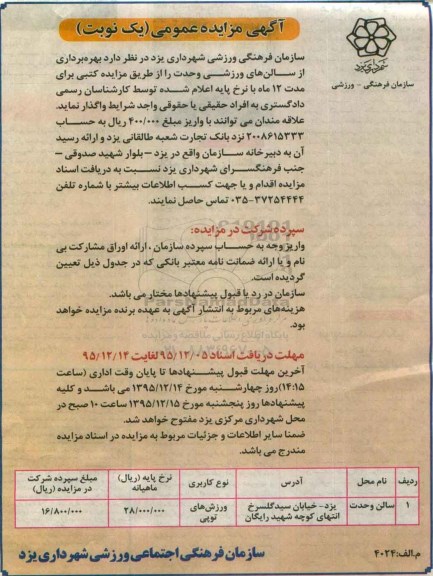 آگهی مزایده عمومی (یک نوبت)
شهرداری یزد
سازمان فرهنگی - ورزشی
سازمان فرهنگی ورزشی شهرداری یزد در نظر دارد بهره‌برداری
از سالن‌های ورزشی وحدت را از طریق مزایده کتبی برای
مدت ۱۲ ماه با نرخ پایه اعلام شده توسط کارشناسان رسمی
دادگستری به افراد حقیقی یا حقوقی واجد شرایط واگذار نماید.
علاقه مندان می توانند با واریز مبلغ ۴۰۰/۰۰۰ ریال به حساب
۲۰۰۸۶۱۵۳۳۳ نزد بانک تجارت شعبه طالقانی یزد و ارائه رسید
آن به دبیرخانه سازمان واقع در یزد – بلوار شهید صدوقی –
جنب فرهنگسرای شهرداری یزد نسبت به دریافت اسناد
مزایده اقدام و یا جهت کسب اطلاعات بیشتر با شماره تلفن
۰۳۵-۳۷۲۵۴۴۴۴ تماس حاصل نمایند.
سپرده شرکت در مزایده:
واریز وجه به حساب سپرده سازمان ، ارائه اوراق مشارکت بی
نام و یا ارائه ضمانت نامه معتبر بانکی که در جدول ذیل تعیین
گردیده است.
سازمان در رد یا قبول پیشنهادها مختار می باشد.
هزینه‌های مربوط به انتشار آگهی به عهده برنده مزایده خواهد
بود.
مهلت دریافت اسناد ۹۵/۱۲/۰۵ لغایت ۹۵/۱۲/۱۴
آخرین مهلت قبول پیشنهادها تا پایان وقت اداری (ساعت
۱۴:۱۵) روز چهارشنبه مورخ ۱۳۹۵/۱۲/۱۴ می باشد و کلیه
پیشنهادها روز پنجشنبه مورخ ۱۳۹۵/۱۲/۱۵ ساعت ۱۰ صبح در
محل شهرداری مرکزی یزد مفتوح خواهد شد.
ضمنا سایر اطلاعات و جزئیات مربوط به مزایده در اسناد مزایده
مندرج می باشد.
ردیف نام محل آدرس نوع کاربری نرخ پایه (ریال) ماهیانه مبلغ سپرده شرکت در مزایده (ریال)
۱ سالن وحدت یزد- خیابان سیدگلسرخ انتهای کوچه شهید رایگان ورزش‌های توپی ۲۸/۰۰۰/۰۰۰ ۱۶/۸۰۰/۰۰۰
م.الف:۴۰۲۴
سازمان فرهنگی اجتماعی ورزشی شهرداری یزد